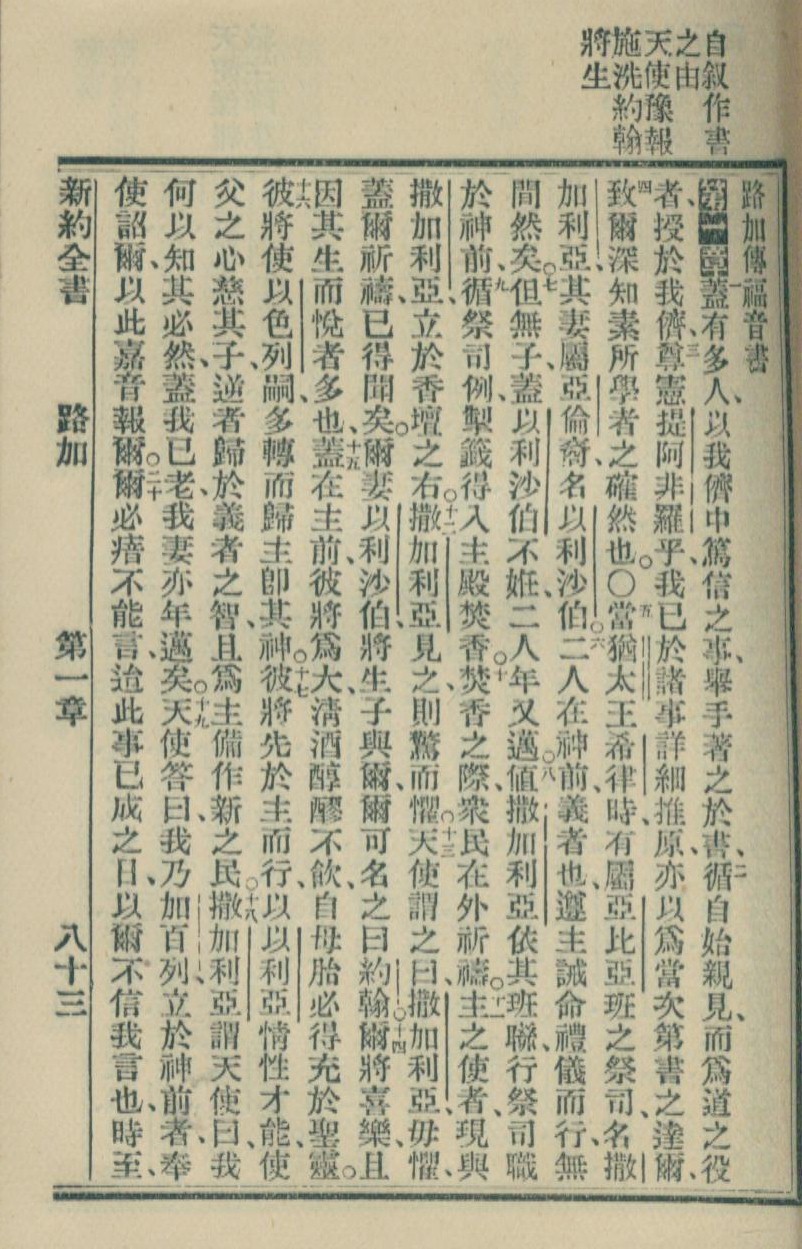 自叙作書
之由
天使豫報
施洗約翰
將生
路加傳福音書
第一章一蓋有多人、以我儕中篤信之事、舉手著之於書、二循自始親見、而爲道之役
者、授於我儕、三尊憲提阿非羅乎、我已於諸事詳細推原、亦以爲當次第書之達爾、
四致爾深知素所學者之確然也。〇五當猶太王希律時、有屬亞比亞班之祭司、名撒
加利亞、其妻屬亞倫裔、名以利沙伯。六二人在神前義者也、遵主誡命禮儀而行、無
間然矣。七但無子、蓋以利沙伯不姙、二人年又邁。八値撒加利亞依其班聯、行祭司職
於神前、九循祭司例、掣籤得入主殿焚香。十焚香之際、衆民在外祈禱。十一主之使者、現與
撒加利亞、立於香壇之右。十二撒加利亞見之、則驚而懼。十三天使謂之曰、撒加利亞、毋懼、
蓋爾祈禱、已得聞矣。爾妻以利沙伯、將生子與爾、爾可名之曰約翰。十四爾將喜樂、且
因其生而悅者多也、十五蓋在主前、彼將爲大、淸酒醇醪不飲、自母胎必得充於聖靈。
十六彼將使以色列嗣、多轉而歸主卽其神。十七彼將先於主而行、以以利亞情性才能、使
父之心慈其子、逆者歸於義者之智、且爲主備作新之民。十八撒加利亞謂天使曰、我
何以知其必然、蓋我已老、我妻亦年邁矣。十九天使答曰、我乃加百列、立於神前者、奉
使詔爾、以此嘉音報爾。二十爾必瘖不能言、迨此事已成之日、以爾不信我言也、時至、
新約全書 路加 第一章 八十三